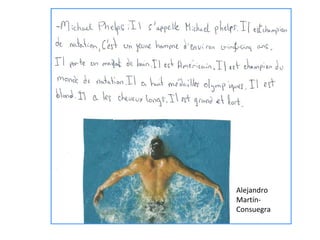 -Michael Phelps: Il s'appelle Michael phelps. Il est champion
de natation, C'est un jeune homme d'environ vintcinq ans.
Il porte un maillot de bain. Il est Américain. Il est champion du
monde de natation. Il a huit médailles olympiques. Il est
blond. Il a les cheveux longs. Il est grand et fort.
Alejandro
Martín-
Consuegra